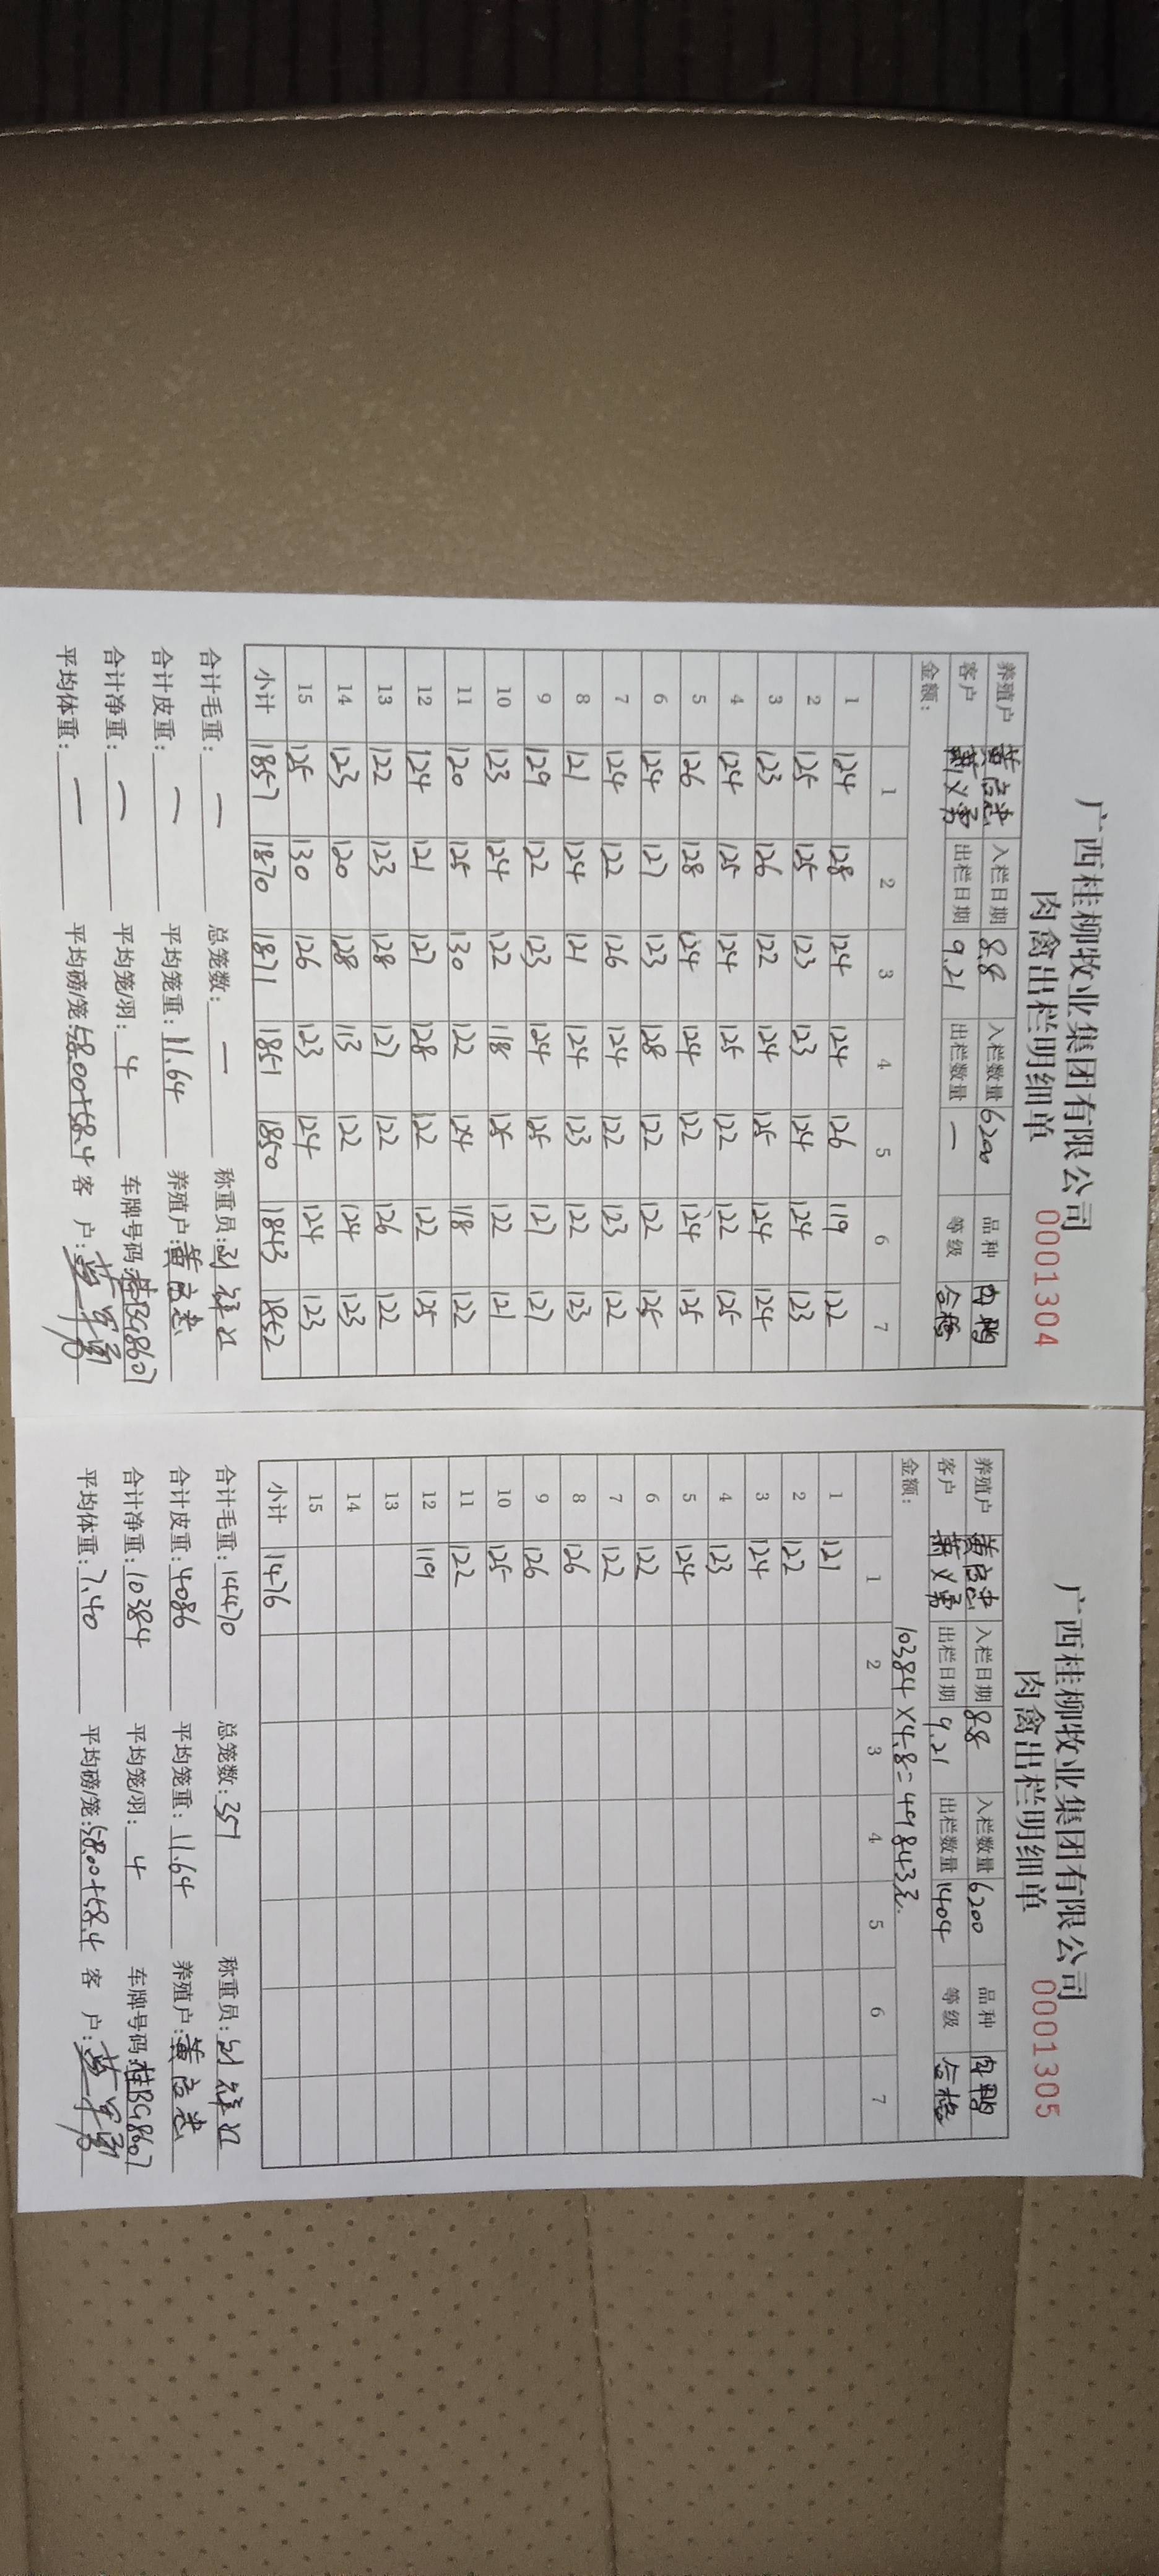 广西桂柳牧业集团有限公司
肉禽出栏明细单 0001304
养殖户 入栏日期 8.8 入栏数量 6200 品种 肉鸭
客户 出栏日期 9.21 出栏数量 一 等级 合格
金额:
1 2 3 4 5 6 7
1 124 128 124 124 126 119 122
2 125 125 123 123 124 124 123
3 123 126 122 124 125 124 124
4 124 125 124 125 122 122 125
5 126 128 124 124 122 124 125
6 124 127 123 128 122 122 125
7 124 122 126 124 122 123 122
8 121 124 121 124 123 122 123
9 129 122 123 124 125 127 127
10 123 124 122 118 125 122 121
11 120 125 130 122 124 118 122
12 124 121 127 128 122 122 125
13 122 123 128 127 122 126 122
14 123 120 128 113 122 124 123
15 125 130 126 123 124 124 123
小计 1857 1870 1871 1851 1850 1843 1852
合计毛重: 一 总笼数: 一 称重员:
合计皮重: 一 平均笼重: 11.64 养殖户:
合计净重: 一 平均笼/羽: 4 车牌号码: 桂BG8607
平均体重: 一 平均磅/笼: 58.00+58.4 客 户:
广西桂柳牧业集团有限公司
肉禽出栏明细单 0001305
养殖户 入栏日期 8.8 入栏数量 6200 品种 肉鸭
客户 出栏日期 9.21 出栏数量 1404 等级 合格
金额: 10384×4.8=49843元.
1 2 3 4 5 6 7
1 121
2 122
3 124
4 123
5 124
6 122
7 122
8 126
9 126
10 125
11 122
12 119
13
14
15
小计 1476
合计毛重: 14470 总笼数: 351 称重员:
合计皮重: 4086 平均笼重: 11.64 养殖户:
合计净重: 10384 平均笼/羽: 4 车牌号码: 桂BG8607
平均体重: 7.40 平均磅/笼: 58.00+58.4 客 户: